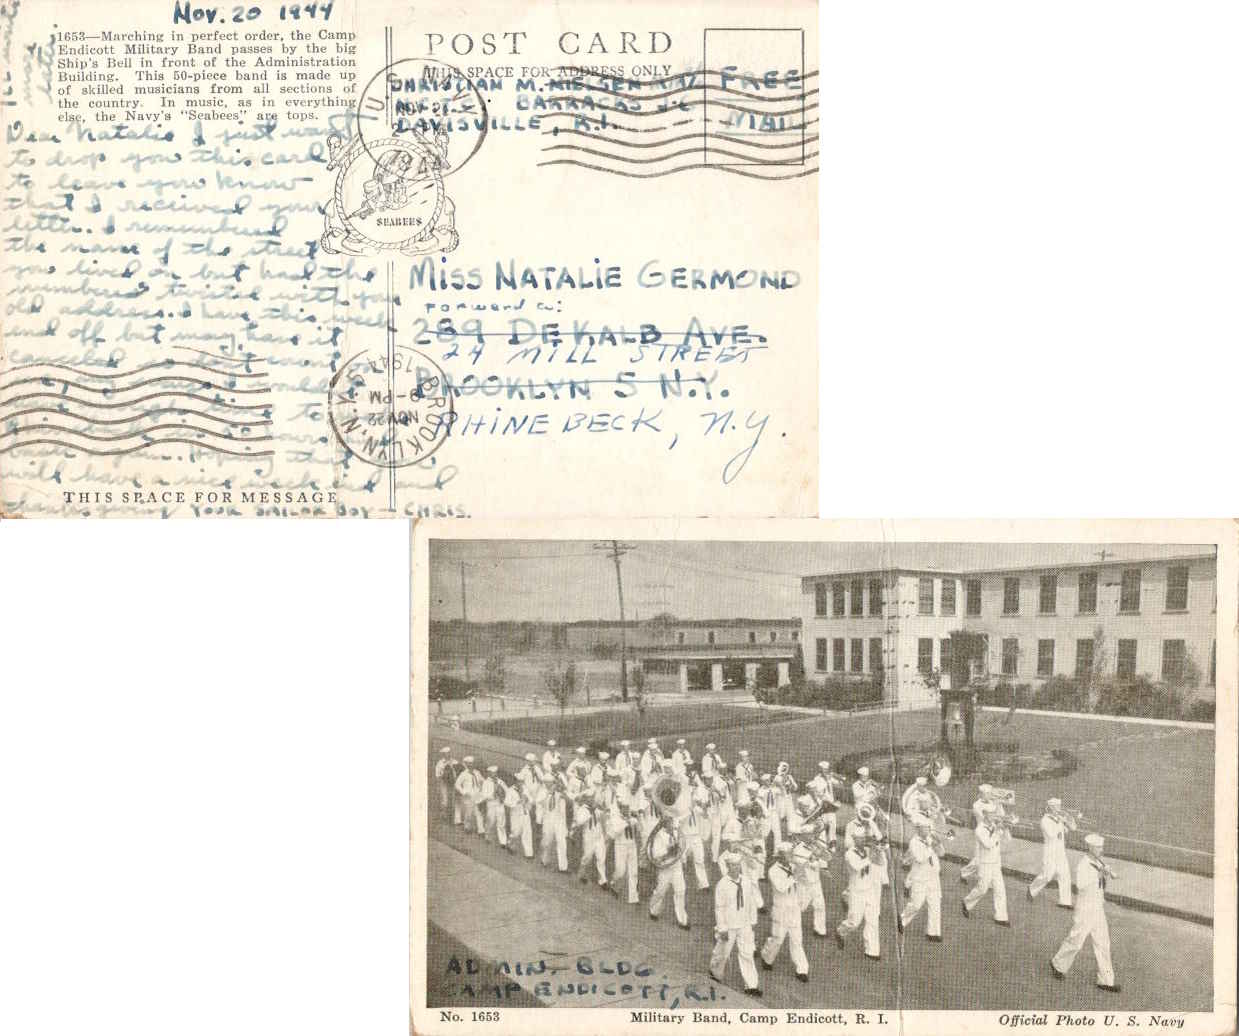 Nov. 20 1944
1653—Marching in perfect order, the Camp
Endicott Military Band passes by the big
Ship's Bell in front of the Administration
Building. This 50-piece band is made up
of skilled musicians from all sections of
the country. In music, as in everything
else, the Navy's "Seabees" are tops.
Dear Natalie I just want
to drop you this card
to leave you know
that I received your
letter. I remembered
the name of the street
you lived on but had the
numbers twisted with your
old address. I have this week
end off but may have it
canceled so dont count on
will have a nice week end and
thanksgiving YOUR SAILOR BOY - CHRIS.
THIS SPACE FOR MESSAGE
POST CARD
THIS SPACE FOR ADDRESS ONLY
CHRISTIAN M. NIELSEN
BARRACKS
DAVISVILLE, R.I.
FREE
MAIL
U.S. NAVY
NOV 21
1944
SEABEES
MISS NATALIE GERMOND
Forward to:
289 DEKALB AVE.
24 MILL STREET
BROOKLYN 5 N.Y.
RHINEBECK, N.Y.
BROOKLYN, N.Y.
NOV 22
9-PM
1944
ADMIN. BLDG.
CAMP ENDICOTT, R.I.
No. 1653
Military Band, Camp Endicott, R. I.
Official Photo U. S. Navy